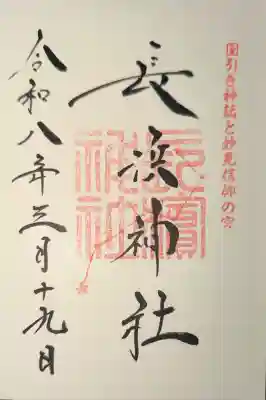 國引き神話と妙見信仰の宮
長浜神社
長濱
神社
令和八年三月十九日